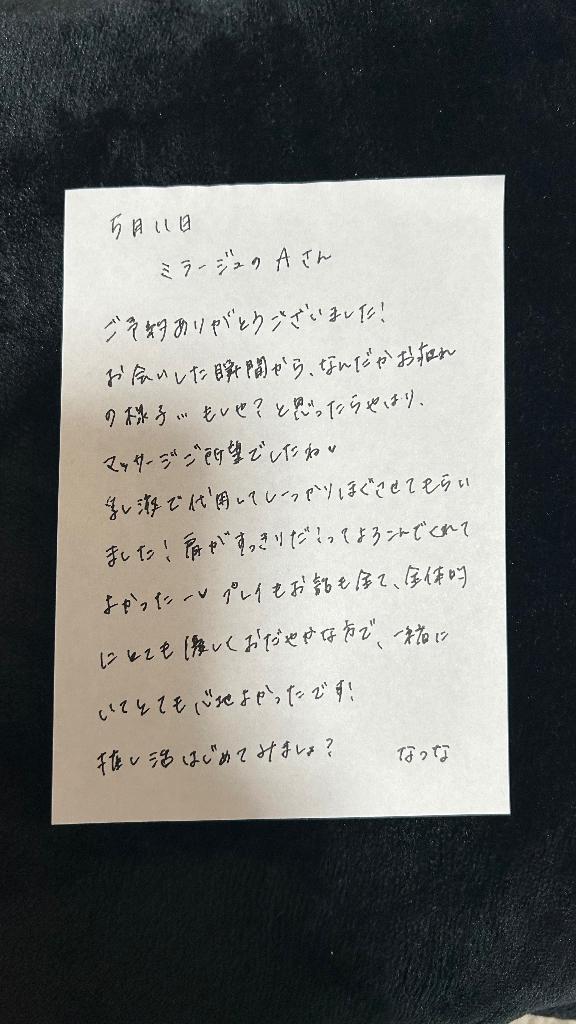 5月11日
ミラージュの Aさん
ご予約ありがとうございました!
お会いした瞬間から、なんだかお疲れ
の様子… もしや?と思ったらやはり、
マッサージご所望でしたね♥
で代用してしっかりほぐさせてもらい
ました!肩がすっきりだ!ってよろこんでくれて
よかったー♥ プレイもお話も全て、全体的
にとても優しくおだやかな方で、一緒に
いてとても心地よかったです!
推し活はじめてみましょ? なつな